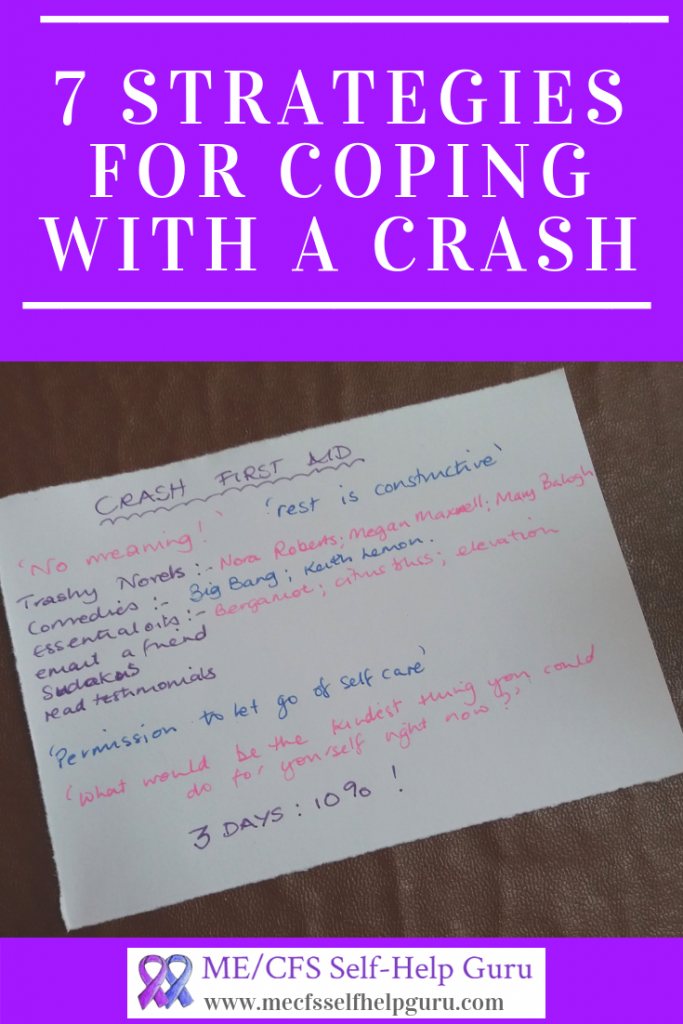 7 STRATEGIES
FOR COPING
WITH A CRASH
CRASH FIRST AID
'No meaning!' 'rest is constructive'
Trashy Novels :- Nora Roberts; Megan Maxwell; Mary Balogh
Comedies :- Big Bang; Keith Lemon.
Essential oils :- Bergamot; citrus bliss; elevation
email a friend
Sudokus
read testimonials
'Permission to let go of self care'
'What would be the kindest thing you could
do for yourself right now?'
3 DAYS : 10% !
ME/CFS Self-Help Guru
www.mecfsselfhelpguru.com